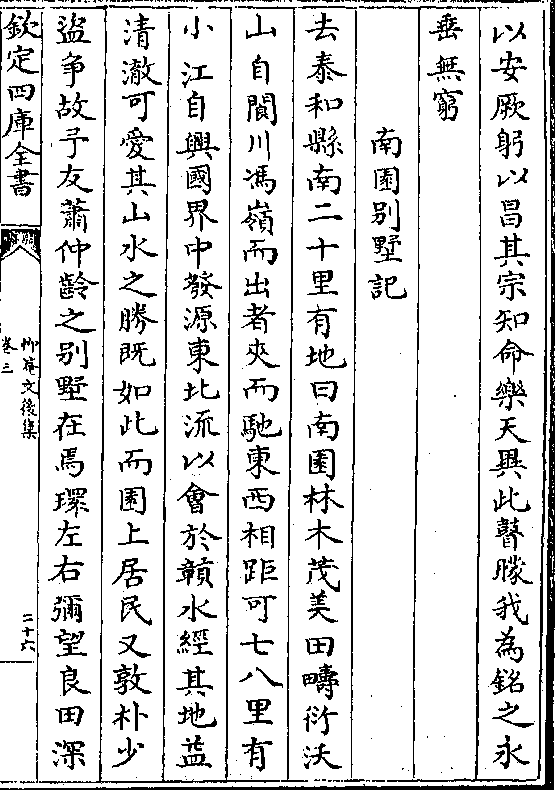 以安厥躬以昌其宗知命樂天異此瞽矇我為銘之永
垂無窮
南園别墅記
去泰和縣南二十里有地曰南園林木茂美田疇衍沃
山自閬川馮嶺而出者夾而馳東西相距可七八里有
小江自興國界中發源東北流以會於贛水經其地益
清澈可愛其山水之勝既如此而園上居民又敦朴少
盜爭故予友蕭仲齡之别墅在焉環左右彌望良田深
欽定四庫全書
抑菴文後集
卷三
二十六